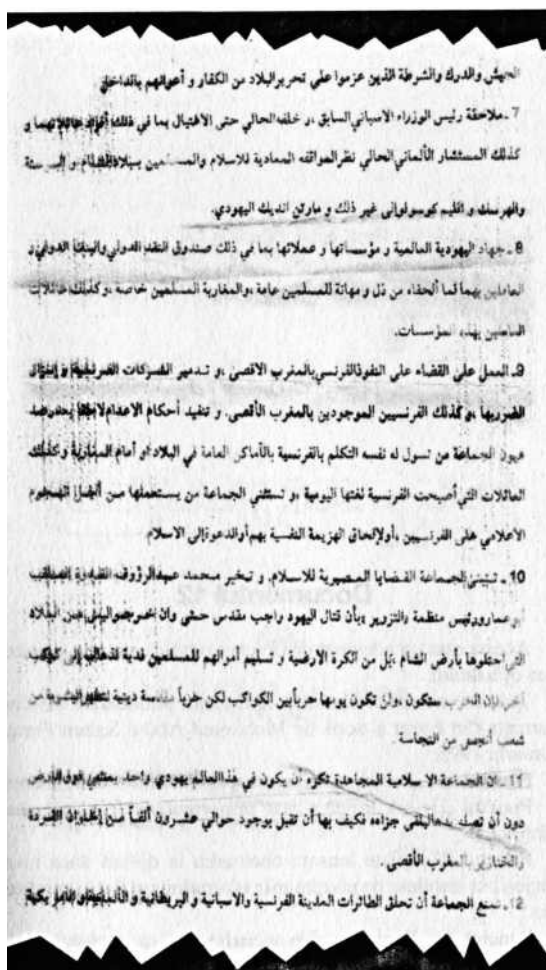 الجيش والدرك والشرطة الذين عزموا على تحرير البلاد من الكفار و أعوانهم بالداخل
7 ـ ملاحقة رئيس الوزراء الاسباني السابق ،و خلفه الحالي حتى الاغتيال بما في ذلك و
كذلك المستشار الألماني الحالي نظر المواقفه المعادية للاسلام والمسلمين ببلاد و
والهرسك و اقليم كوسولوانى غير ذلك و مارتن انديك اليهودي.
8 ـ جهاد اليهودية العالمية و مؤسساتها و عملائها بما في ذلك صندوق النقد الدولي والبنك الدولي و
العاملين بهما لما ألحقاه من ذل و مهانة للمسلمين عامة ،والمغاربة المسلمين خاصة ،وكذلك عائلات
العاملين بهذه المؤسسات.
9ـ العمل على القضاء على النفوذ الفرنسي بالمغرب الاقصى ،و تدمير الشركات الفرنسية و
،و كذلك الفرنسيين الموجودين بالمغرب الأقصى. و تنفيد أحكام الاعدام
عيون الجماعة من تسول له نفسه التكلم بالفرنسية بالأماكن العامة في البلاد أو أمام المغاربة وكذلك
العائلات التي أصبحت الفرنسية لغتها اليومية ،و تستثني الجماعة من يستعملها من أجل الهجوم
الاعلامي على الفرنسيين ،أو لإلحاق الهزيمة النفسية بهم أو الدعوة إلى الاسلام.
10 ـ تتبنى الجماعة القضايا المصيرية للاسلام. و تخبر محمد عبد الرؤوف
أبو عمار ورئيس منظمة والتزوير ،بأن قتال اليهود واجب مقدس حتى وان خرجوا من البلاد
التي احتلوها بأرض الشام ،بل من الكرة الارضية و تسلم أموالهم للمسلمين فدية إلى كوكب
آخر، فإن الحرب ستكون ،ولن تكون يومها حربا بين الكواكب لكن حربا مقدسة دينية لتطهر من
شعب من النجاسة.
11 ـ ان الجماعة الاسلامية المجاهدة تكره ان يكون في هذا العالم يهودي واحد يمشي فوق الارض
دون أن تصله يدها ليلقى جزاءه فكيف بها أن تقبل بوجود حوالي عشرون ألفا من إخوان القردة
والخنازير بالمغرب الأقصى.
12ـ تمنع الجماعة أن تحلق الطائرات المدنية الفرنسية والاسبانية و البريطانية و